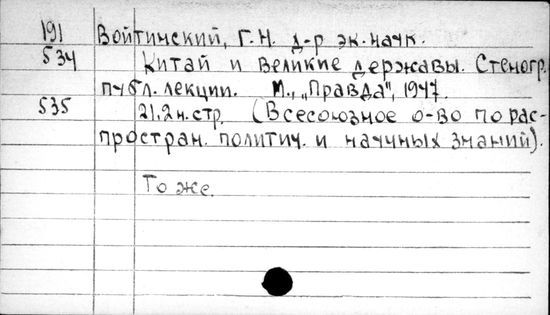 191 Войтинский, Г.Н. д-р эк.наук.
534 Китай и великие державы. Стеногр.
публ. лекции. М., „Правда", 1947.
535 21,2н.стр. (Всесоюзное о-во по рас-
простран. политич. и научных знаний).
То же.